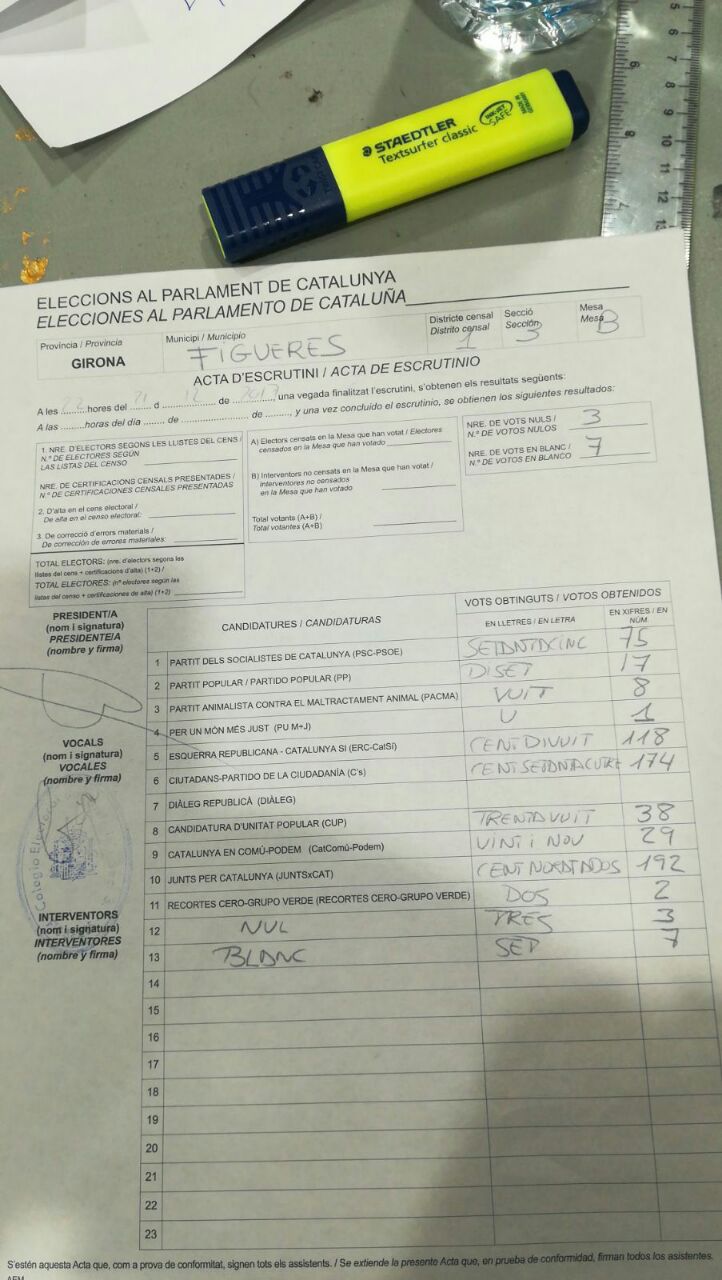 STAEDTLER
Textsurfer classic
INK-JET
SAFE
MADE IN
GERMANY
ELECCIONS AL PARLAMENT DE CATALUNYA
ELECCIONES AL PARLAMENTO DE CATALUÑA
Província / Provincia
GIRONA
Municipi / Municipio
FIGUERES
Districte censal
Distrito censal
1
Secció
Sección
3
Mesa
Mesa
B
ACTA D'ESCRUTINI / ACTA DE ESCRUTINIO
A les 22 hores del 21 d 12 de 2017 una vegada finalitzat l'escrutini, s'obtenen els resultats següents:
A las ........horas del día ...... de ........................ de ........, y una vez concluido el escrutinio, se obtienen los siguientes resultados:
1. NRE. D'ELECTORS SEGONS LES LLISTES DEL CENS /
N.º DE ELECTORES SEGÚN
LAS LISTAS DEL CENSO
NRE. DE CERTIFICACIONS CENSALS PRESENTADES /
N.º DE CERTIFICACIONES CENSALES PRESENTADAS
2. D'alta en el cens electoral /
De alta en el censo electoral:
3. De correcció d'errors materials /
De corrección de errores materiales:
TOTAL ELECTORS: (nre. d'electors segons les
llistes del cens + certificacions d'alta) (1+2) /
TOTAL ELECTORES: (nº electores según las
listas del censo + certificaciones de alta) (1+2)
A) Electors censats en la Mesa que han votat / Electores
censados en la Mesa que han votado
B) Interventors no censats en la Mesa que han votat /
Interventores no censados
en la Mesa que han votado
Total votants (A+B) /
Total votantes (A+B)
NRE. DE VOTS NULS /
N.º DE VOTOS NULOS
3
NRE. DE VOTS EN BLANC /
N.º DE VOTOS EN BLANCO
7
PRESIDENT/A
(nom i signatura)
PRESIDENTE/A
(nombre y firma)
VOCALS
(nom i signatura)
VOCALES
(nombre y firma)
Colegio
INTERVENTORS
(nom i signatura)
INTERVENTORES
(nombre y firma)
CANDIDATURES / CANDIDATURAS
VOTS OBTINGUTS / VOTOS OBTENIDOS
EN LLETRES / EN LETRA
EN XIFRES / EN NÚM.
1 PARTIT DELS SOCIALISTES DE CATALUNYA (PSC-PSOE) SETANTACINC 75
2 PARTIT POPULAR / PARTIDO POPULAR (PP) DISET 17
3 PARTIT ANIMALISTA CONTRA EL MALTRACTAMENT ANIMAL (PACMA) VUIT 8
4 PER UN MÓN MÉS JUST (PU M+J) U 1
5 ESQUERRA REPUBLICANA - CATALUNYA SÍ (ERC-CatSí) CENT DIVUIT 118
6 CIUTADANS-PARTIDO DE LA CIUDADANÍA (C's) 174
7 DIÀLEG REPUBLICÀ (DIÀLEG)
8 CANDIDATURA D'UNITAT POPULAR (CUP) TRENTAVUIT 38
9 CATALUNYA EN COMÚ-PODEM (CatComú-Podem) VINT i NOU 29
10 JUNTS PER CATALUNYA (JUNTSxCAT) 192
11 RECORTES CERO-GRUPO VERDE (RECORTES CERO-GRUPO VERDE) DOS 2
12 NUL TRES 3
13 BLANC SET 7
14
15
16
17
18
19
20
21
22
23
S'estén aquesta Acta que, com a prova de conformitat, signen tots els assistents. / Se extiende la presente Acta que, en prueba de conformidad, firman todos los asistentes.